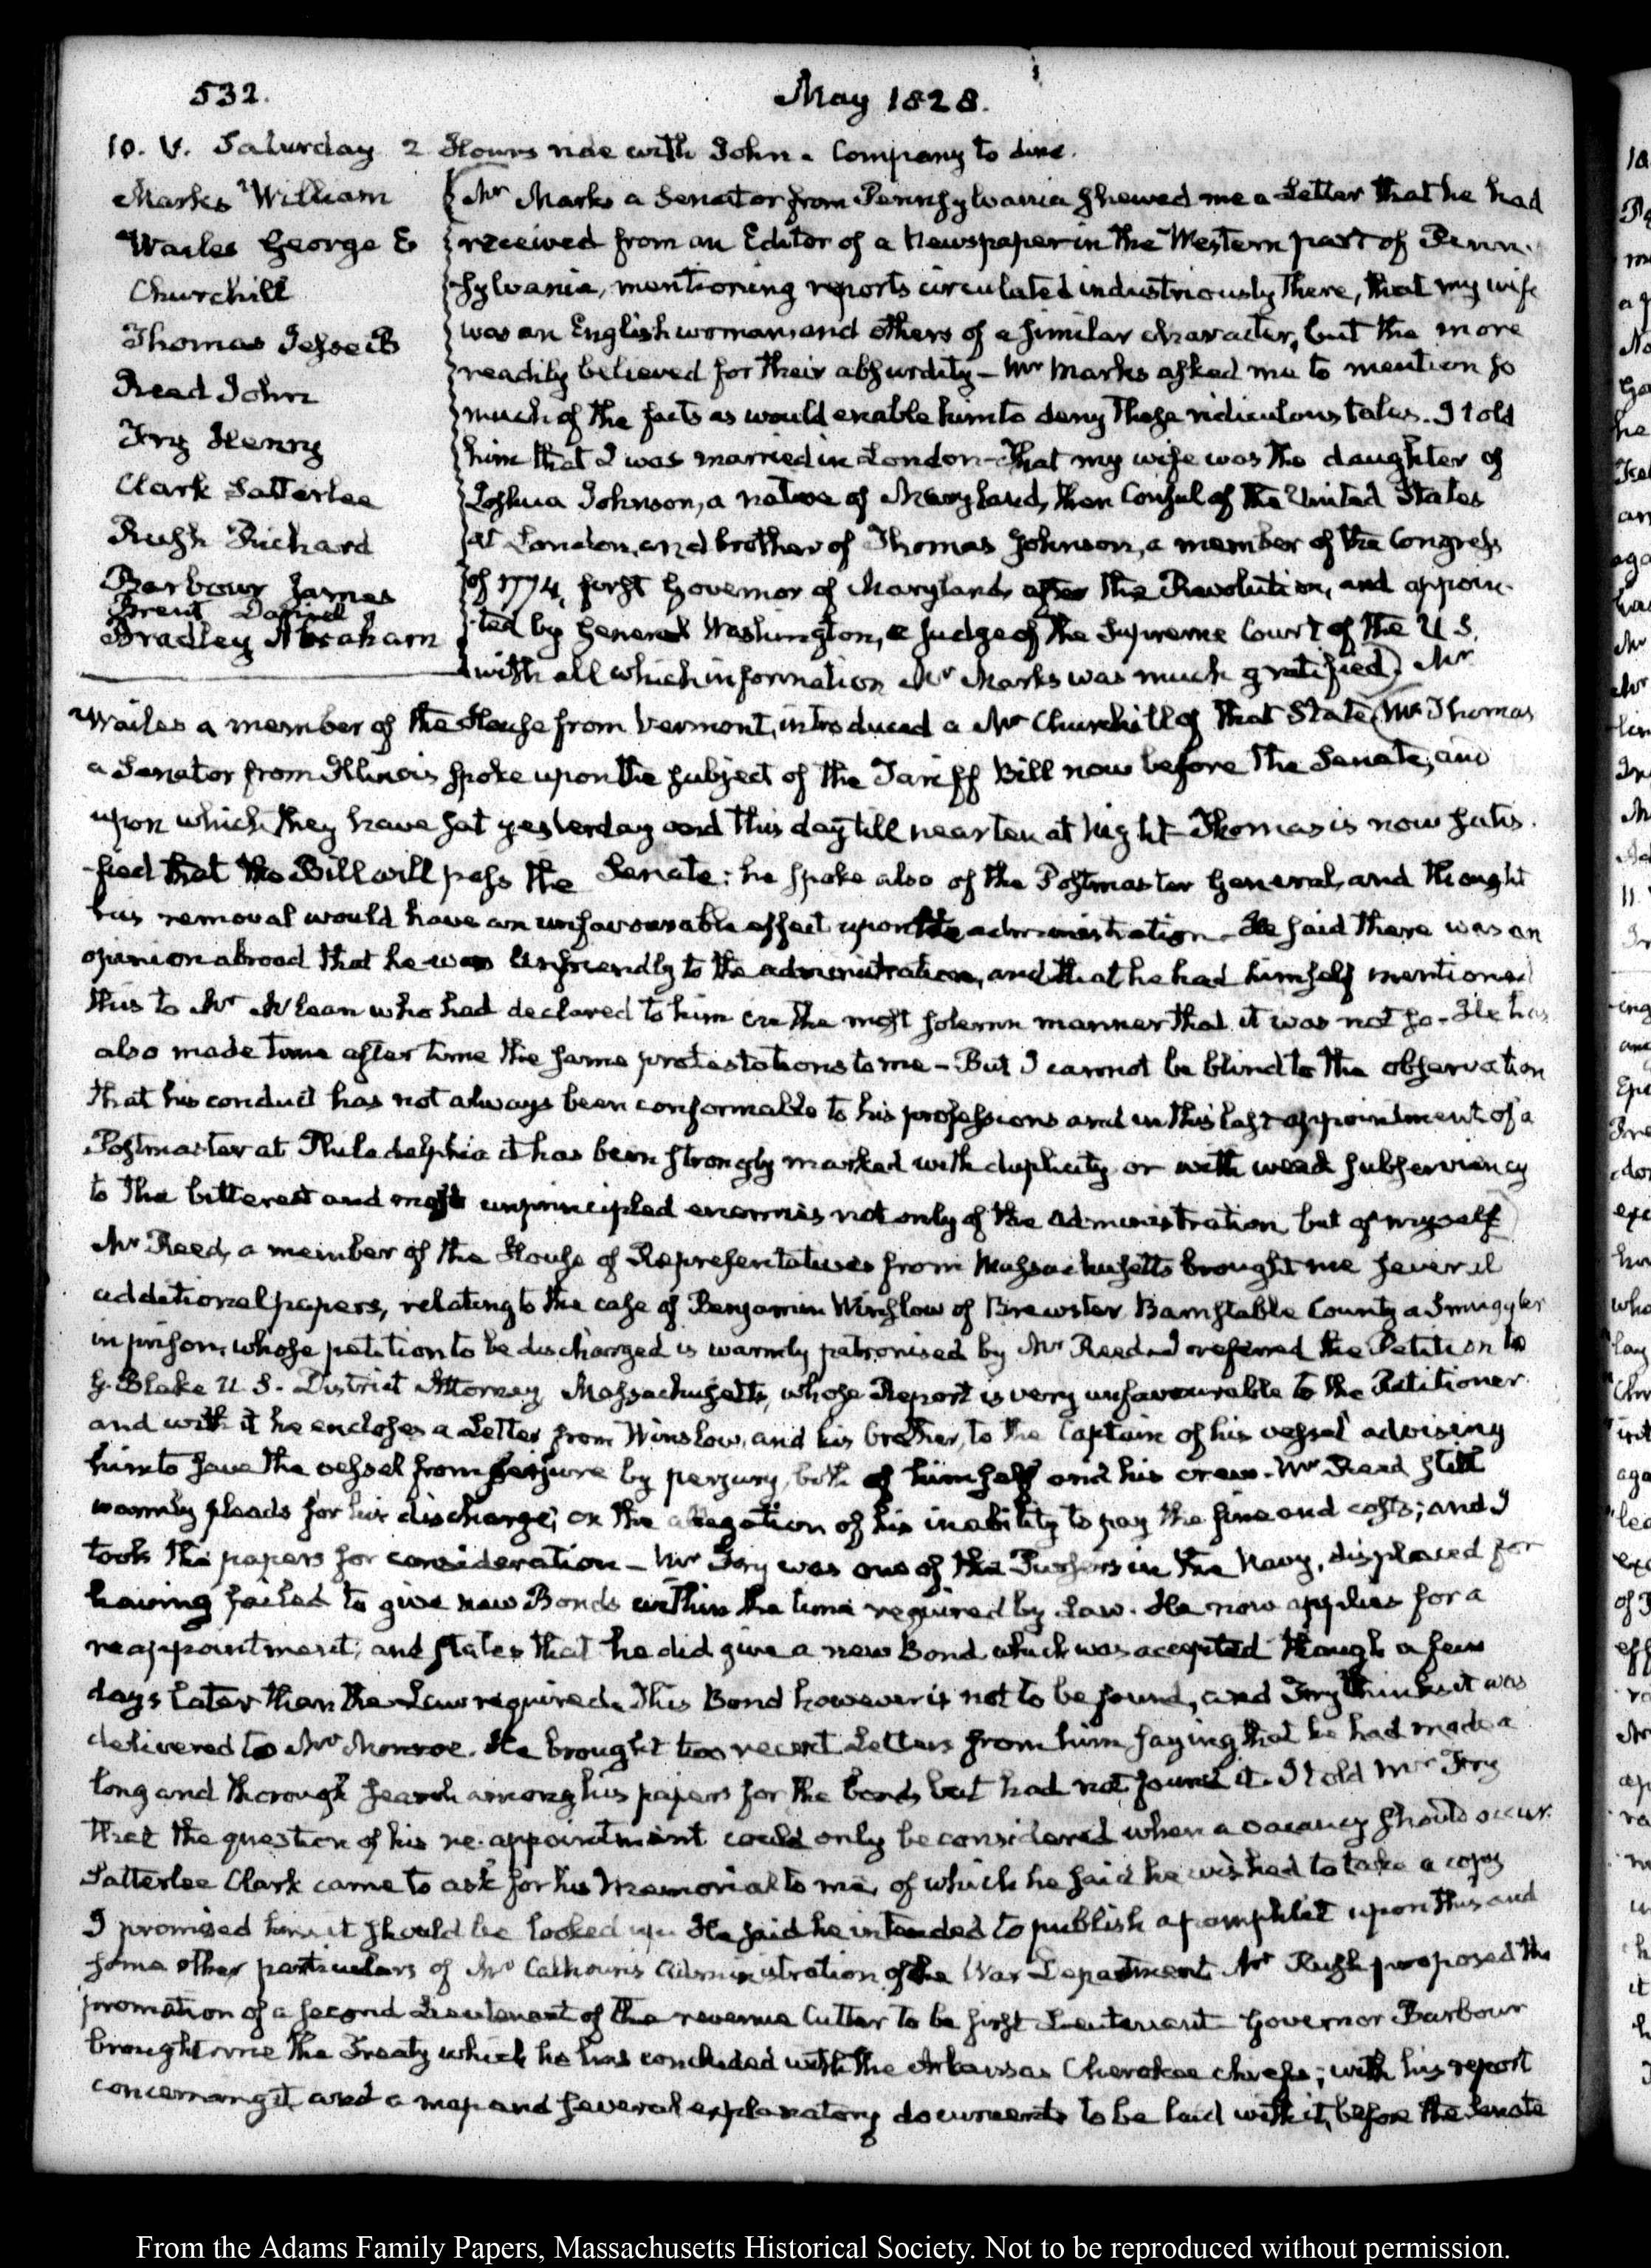 532.
May 1828.
10. V. Saturday 2 Hours ride with John. Company to dine.
Marks William
Wales George E
Churchill
Thomas Jesse B
Reed John
Fry Henry
Clark Satterlee
Rush Richard
Barbour James
Brent Daniel
Bradley Abraham
Mr Marks a Senator from Pennsylvania shewed me a Letter that he had
received from an Editor of a Newspaper in the Western part of Penn-
sylvania, mentioning reports circulated industriously there, that my wife
was an English woman, and others of a similar character, but the more
readily believed for their absurdity — Mr Marks asked me to mention so
much of the facts as would enable him to deny these ridiculous tales. I told
him that I was married in London — That my wife was the daughter of
Joshua Johnson, a native of Maryland, then Consul of the United States
at London, and brother of Thomas Johnson, a member of the Congress
of 1774, first Governor of Maryland, after the Revolution, and appoin-
ted by General Washington, a Judge of the Supreme Court of the U.S.
with all which information Mr Marks was much gratified) Mr
Wales a member of the House from Vermont, introduced a Mr Churchill of that State (Mr Thomas
a Senator from Illinois spoke upon the subject of the Tariff Bill now before the Senate, and
upon which they have sat yesterday and this day till near ten at Night — Thomas is now satis-
fied that the Bill will pass the Senate: he spoke also of the Postmaster General, and thought
his removal would have an unfavourable effect upon the administration — He said there was an
opinion abroad that he was unfriendly to the administration, and that he had himself mentioned
this to Mr McLean who had declared to him in the most solemn manner that it was not so — He has
also made time after time the same protestations to me — But I cannot be blind to the observation
that his conduct has not always been conformable to his professions and in this last appointment of a
Postmaster at Philadelphia it has been strongly marked with duplicity or with weak subserviency
to the bitterest and most unprincipled enemies not only of the Administration but of myself)
Mr Reed, a member of the House of Representatives from Massachusetts brought me several
additional papers, relating to the case of Benjamin Winslow of Brewster Barnstable County a Smuggler
in prison, whose petition to be discharged is warmly patronised by Mr Reed — I referred the Petition to
G. Blake U.S. District Attorney Massachusetts, whose Report is very unfavourable to the Petitioner
and with it he encloses a Letter from Winslow, and his brother, to the Captain of his vessel advising
him to save the vessel from seizure by perjury, both of himself and his crew. Mr Reed still
warmly pleads for his discharge; on the allegation of his inability to pay the fine and costs; and I
took the papers for consideration — Mr Fry was one of the Pursers in the Navy, displaced for
having failed to give new Bonds within the time required by Law. He now applies for a
reappointment; and states that he did give a new Bond which was accepted though a few
days later than the Law required. This Bond however is not to be found, and Fry thinks it was
delivered to Mr Monroe. He brought two recent Letters from him saying that he had made a
long and thorough search among his papers for the bond, but had not found it. I told Mr Fry
that the question of his re-appointment could only be considered when a vacancy should occur.
Satterlee Clark came to ask for his Memorial to me, of which he said he wished to take a copy
I promised him it should be looked up. He said he intended to publish a pamphlet upon this and
some other particulars of Mr Calhoun's Administration of the War Department. Mr Rush proposed the
promotion of a second Lieutenant of the revenue Cutter to be first Lieutenant. Governor Barbour
brought me the Treaty which he has concluded with the Arkansas Cherokee chiefs; with his report
concerning it and a map and several explanatory documents to be laid with it, before the Senate
From the Adams Family Papers, Massachusetts Historical Society. Not to be reproduced without permission.